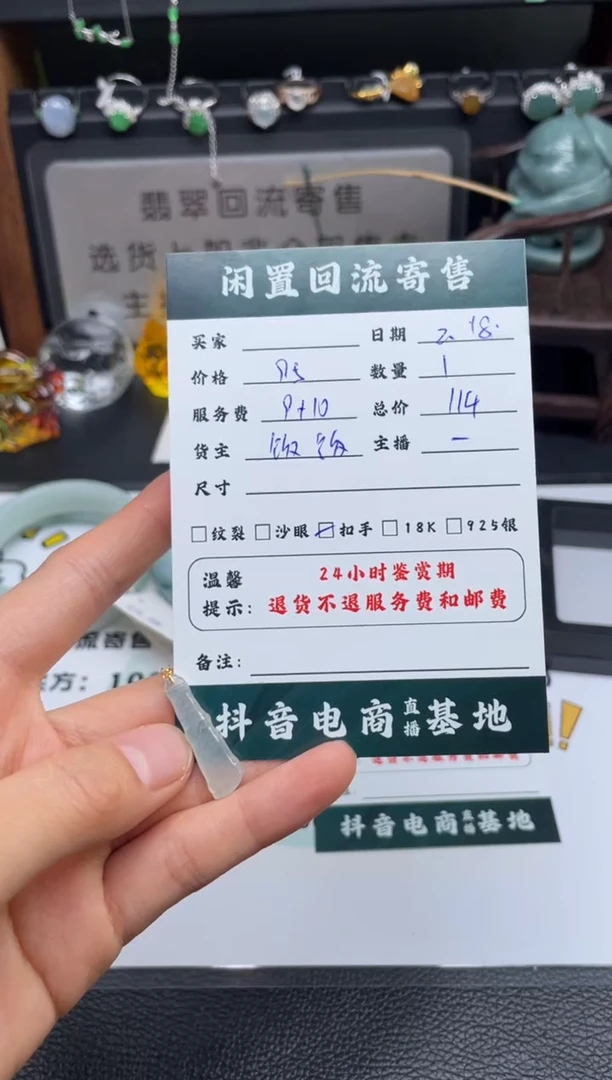 翡翠回流寄售
闲置回流寄售
买家 日期 2.18.
价格 95 数量 1
服务费 9+10 总价 114
货主 饭饭 主播 一
尺寸
□纹裂 □沙眼 ☑扣手 □18K □925银
温馨 24小时鉴赏期
提示: 退货不退服务费和邮费
备注:
抖音电商直播基地
流寄售
方: 10
抖音电商直播基地